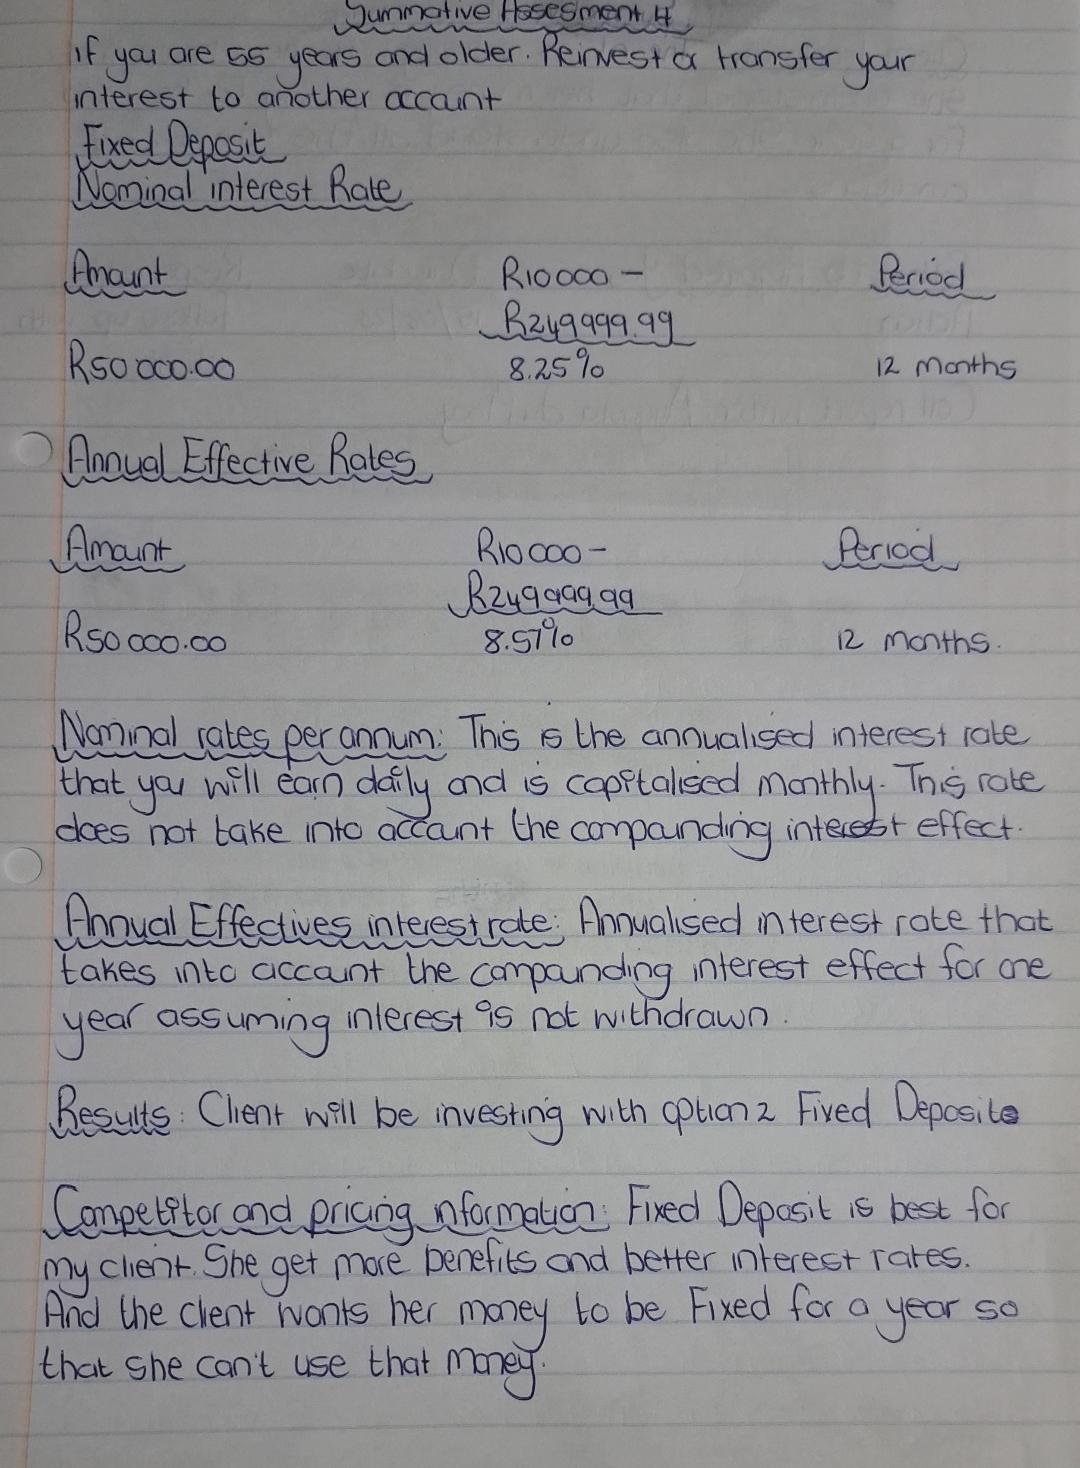 Summative Assesment 4
if you are 55 years and older. Reinvest or transfer your
interest to another account
Fixed Deposit
Nominal interest Rate
Amount R10 000 - Period
R249 999.99
R50 000.00 8.25% 12 months
Annual Effective Rates
Amount R10 000 - Period
R249 999.99
R50 000.00 8.57% 12 months.
Nominal rates per annum: This is the annualised interest rate
that you will earn daily and is capitalised monthly. This rate
does not take into account the compounding interest effect.
Annual Effectives interest rate: Annualised interest rate that
takes into account the compounding interest effect for one
year assuming interest is not withdrawn.
Results: Client will be investing with option 2 Fixed Deposits
Competitor and pricing information: Fixed Deposit is best for
my client. She get more benefits and better interest rates.
And the client wants her money to be Fixed for a year so
that she can't use that money.